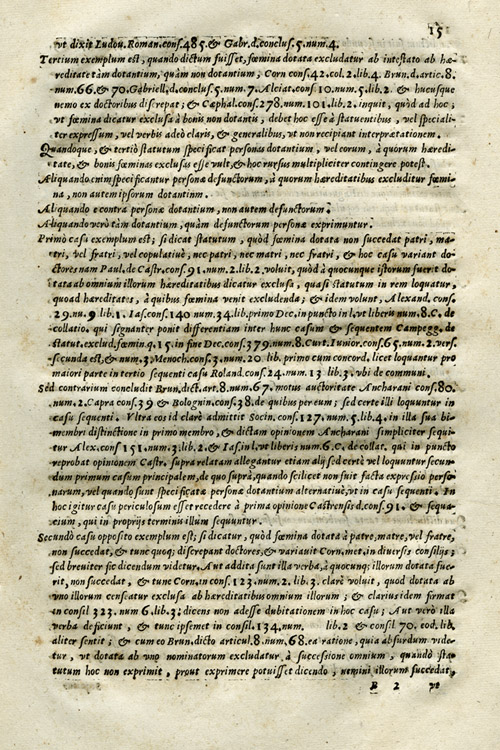 15
vt dixit Ludou. Roman. cons. 485. & Gabr. d. conclus. 5. num. 4.
Tertium exemplum est, quando dictum fuisset, fœmina dotata excludatur ab intestato ab hæ-
reditate tàm dotantium, quàm non dotantium, Corn cons. 42. col. 2. lib. 4. Brun. d. artic. 8.
num. 66. & 70. Gabriell. d. conclus. 5. num. 7. Alciat. conf. 10. num. 5. lib. 2. & hucusque
nemo ex doctoribus discrepat; & Cæphal. cons. 278. num. 101. lib. 2. inquit, quòd ad hoc;
vt fœmina dicatur exclusa à bonis non dotantis, debet hoc esse à statuentibus, vel speciali-
ter expressum, vel verbis adeò claris, & generalibus, vt non recipiant interpretationem.
Quandoque, & tertiò statutum specificat personas dotantium, vel eorum, à quorum hæredi-
tate, & bonis fœminas exclusas esse vult, & hoc rursus multipliciter contingere potest.
Aliquando enim specificantur personæ defunctorum, à quorum hæreditatibus excluditur fœmi-
na, non autem ipsorum dotantium.
Aliquando e contra personæ dotantium, non autem defunctorum.
Aliquando verò tàm dotantium, quàm defunctorum personæ exprimuntur.
Primò casu exemplum est; si dicat statutum, quòd fœmina dotata non succedat patri, ma-
tri, vel fratri, vel copulatiuè, nec patri, nec matri, nec fratri, & hoc casu variant do-
ctores nam Paul. de Castr. cons. 91. num. 2. lib. 2. voluit, quòd à quocunque istorum fuerit do-
tata ab omnium illorum hæreditatibus dicatur exclusa, quasi statutum in rem loquatur,
quoad hæreditates, à quibus fœmina venit excludenda; & idem volunt, Alexand. cons.
29. nu. 9 lib. 1. Ias. cons. 140 num. 34. lib. primo Dec. in puncto in l. vt liberis num. 8. C. de
collatio. qui segnanter ponit differentiam inter hunc casum & sequentem Campegg. de
statut. exclud. fœmin. q. 15 in fine Dec. cons. 379. num. 8. Curt. Iunior. cons. 65. num. 2. vers.
secunda est, & num. 3. Menoch. cons. 3. num. 20 lib. primo cum concord. licet loquantur pro
maiori parte in tertio sequenti casu Roland. cons. 24. num. 13 lib. 3. vbi de communi.
Sed contrarium concludit Brun. dict. art. 8. num. 67. motus auctoritate Ancharani cons. 80.
num. 2. Capra cons. 39 & Bolognin. cons. 38. de quibus per eum; sed certe illi loquuntur in
casu sequenti. Vltra eos id clarè admittit Socin. cons. 127. num. 5. lib. 4. in illa sua bi-
membri distinctione in primo membro, & dictam opinionem Ancharani simpliciter sequi-
tur Alex. cons 151. num. 3. lib. 2. & Ias. in l. vt liberis num. 6. C. de collat. qui in puncto
reprobat opinionem Castr. supra relatam allegantur etiam alij sed certè vel loquuntur secun-
dum primum casum principalem, de quo suprà, quando scilicet non fuit facta expressio perso-
narum, vel quando sunt specificatæ personæ dotantium alternatiuè, vt in casu sequenti. In
hoc igitur casu periculosum esset recedere à prima opinione Castrensis d. cons. 91. & sequa-
cium, qui in proprijs terminis illum sequuntur.
Secundò casu opposito exemplum est; si dicatur, quòd fœmina dotata à patre, matre, vel fratre,
non succedat, & tunc quoq; discrepant doctores, & variauit Corn. met. in diuersis consilijs;
sed breuiter sic dicendum videtur. Aut addita sunt illa verba, à quocunq; illorum dotata fue-
rit, non succedat, & tunc Corn. in cons. 123. num. 2. lib. 3. clarè voluit, quod dotata ab
vno illorum censeatur exclusa ab hæreditatibus omnium illorum; & clarius idem firmat
in consil 323. num 6. lib. 3; dicens non adesse dubitationem in hoc casu; Aut verò illa
verba deficiunt, & tunc ipsemet in consil. 134. num. lib. 2 & consil. 70. eod. lib.
aliter sentit; & cum eo Brun. dicto articul. 8. num. 68. ea ratione, quia absurdum vide-
tur, vt dotata ab vno nominatorum excludatur à successione omnium, quandò sta-
tutum hoc non exprimit, prout exprimere potuisset dicendo, nemini illorum succedat,
B 2 vt